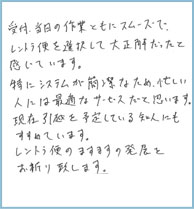 受付、当日の作業ともにスムーズで、
レントラ便を選択して大正解だったと
感じています。
特にシステムが簡潔なため、忙しい
人には最適なサービスだと思います。
現在引越を予定している知人にも
すすめています。
レントラ便のますますの発展を
お祈り致します。